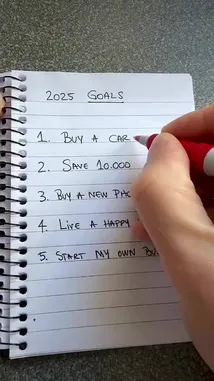 2025 GOALS
1. BUY A CAR
2. SAVE 10.000
3. BUY A NEW
4. LIVE A HAPPY
5. START MY OWN